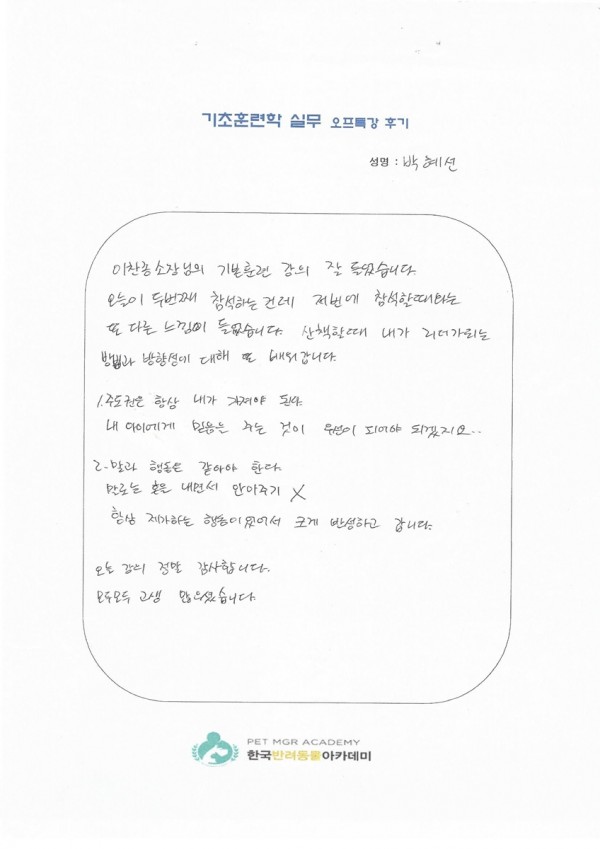 기초훈련학 실무 오프특강 후기
성명 : 박혜선
이찬종소장님의 기본훈련 강의 잘 들었습니다.
오늘이 두번째 참석하는건데 저번에 참석할때와는
또 다른 느낌이 들었습니다. 산책할때 내가 리더가되는
방법과 방향성에 대해 또 배워갑니다.
1. 주도권은 항상 내가 가져야 된다.
내 아이에게 믿음을 주는 것이 우선이 되어야 되겠지요..
2. 말과 행동은 같아야 한다.
말로는 혼을 내면서 안아주기 X
항상 제가하는 행동이였어서 크게 반성하고 갑니다.
오늘 강의 정말 감사합니다.
모두모두 고생 많으셨습니다.
PET MGR ACADEMY
한국반려동물아카데미